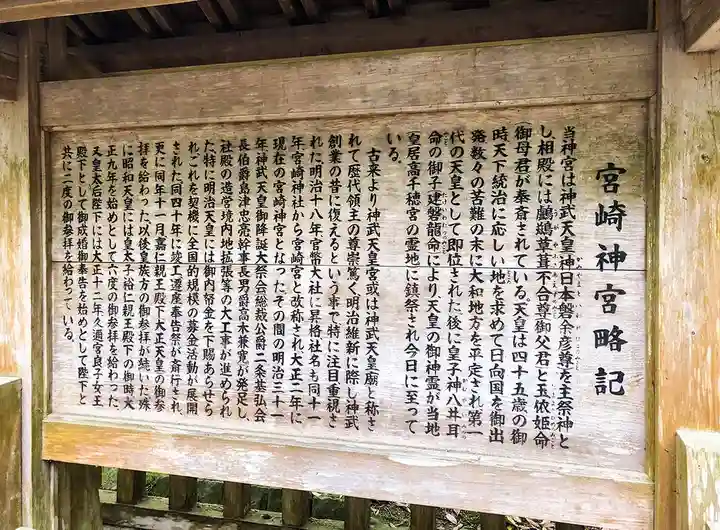 宮崎神宮略記
当神宮は神武天皇神日本磐余彦尊を主祭神と
し相殿には鸕鷀草葺不合尊御父君と玉依姫命
御母君が奉斎されている。天皇は四十五歳の御
時天下統治に応しい地を求めて日向国を御出
発数々の苦難の末に大和地方を平定され第一
代の天皇として即位された後に皇子神八井耳
命の御子建磐龍命により天皇の御神霊が当地
皇居高千穂宮の霊地に鎮祭され今日に至って
いる。
古来より神武天皇宮或は神武天皇廟と称さ
れて歴代領主の尊崇篤く明治維新に際し神武
創業の昔に復えるという事で特に注目重視さ
れた明治十八年官幣大社に昇格社名も同十一
年宮崎神社から宮崎宮と改称され大正二年に
現在の宮崎神宮となったその間の明治三十一
年神武天皇御降誕大祭会総裁公爵二条基弘会
長伯爵島津忠亮幹事長男爵高木兼寛が発足し
社殿の造営境内地拡張等の大工事が進められ
た特に明治天皇には御内帑金を下賜あらせら
れこれを契機に全国的規模の募金活動が展開
された同四十年に竣工遷座奉告祭が斎行され
更に同年十一月嘉仁親王殿下大正天皇の御参
拝を給わった以後皇族方の御参拝が続いた殊
に昭和天皇には皇太子裕仁親王殿下の御時大
正九年を始めとして六度の御参拝を給わった
又皇太后陛下には大正十二年久邇宮良子女王
殿下として御成婚御奉告を始めとして陛下と
共に二度の御参拝を給わっている。